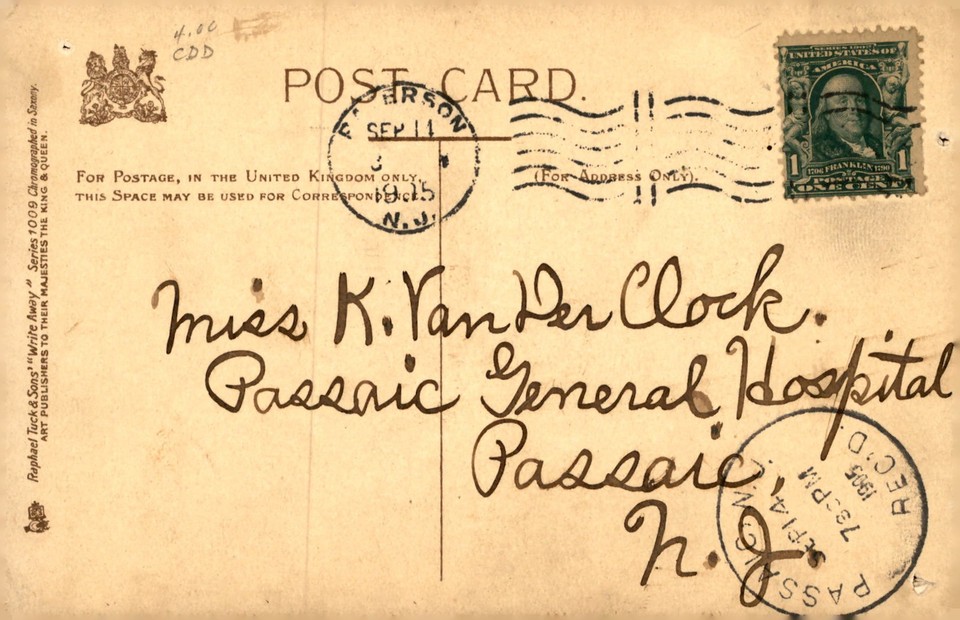 4.00
CDD
POST CARD.
PATERSON
SEP 14
3
1905
N.J.
SERIES 1902
UNITED STATES OF
AMERICA
1 1706 FRANKLIN 1790 1
POSTAGE
ONE CENT
FOR POSTAGE, IN THE UNITED KINGDOM ONLY,
THIS SPACE MAY BE USED FOR CORRESPONDENCE.
(FOR ADDRESS ONLY).
Raphael Tuck & Sons' "Write Away" Series 1009. Chromographed in Saxony.
ART PUBLISHERS TO THEIR MAJESTIES THE KING & QUEEN.
Miss K. Van Der Clock.
Passaic General Hospital
Passaic,
N.J.
PASSAIC, N.J.
SEP 14
PM
1905
REC'D.